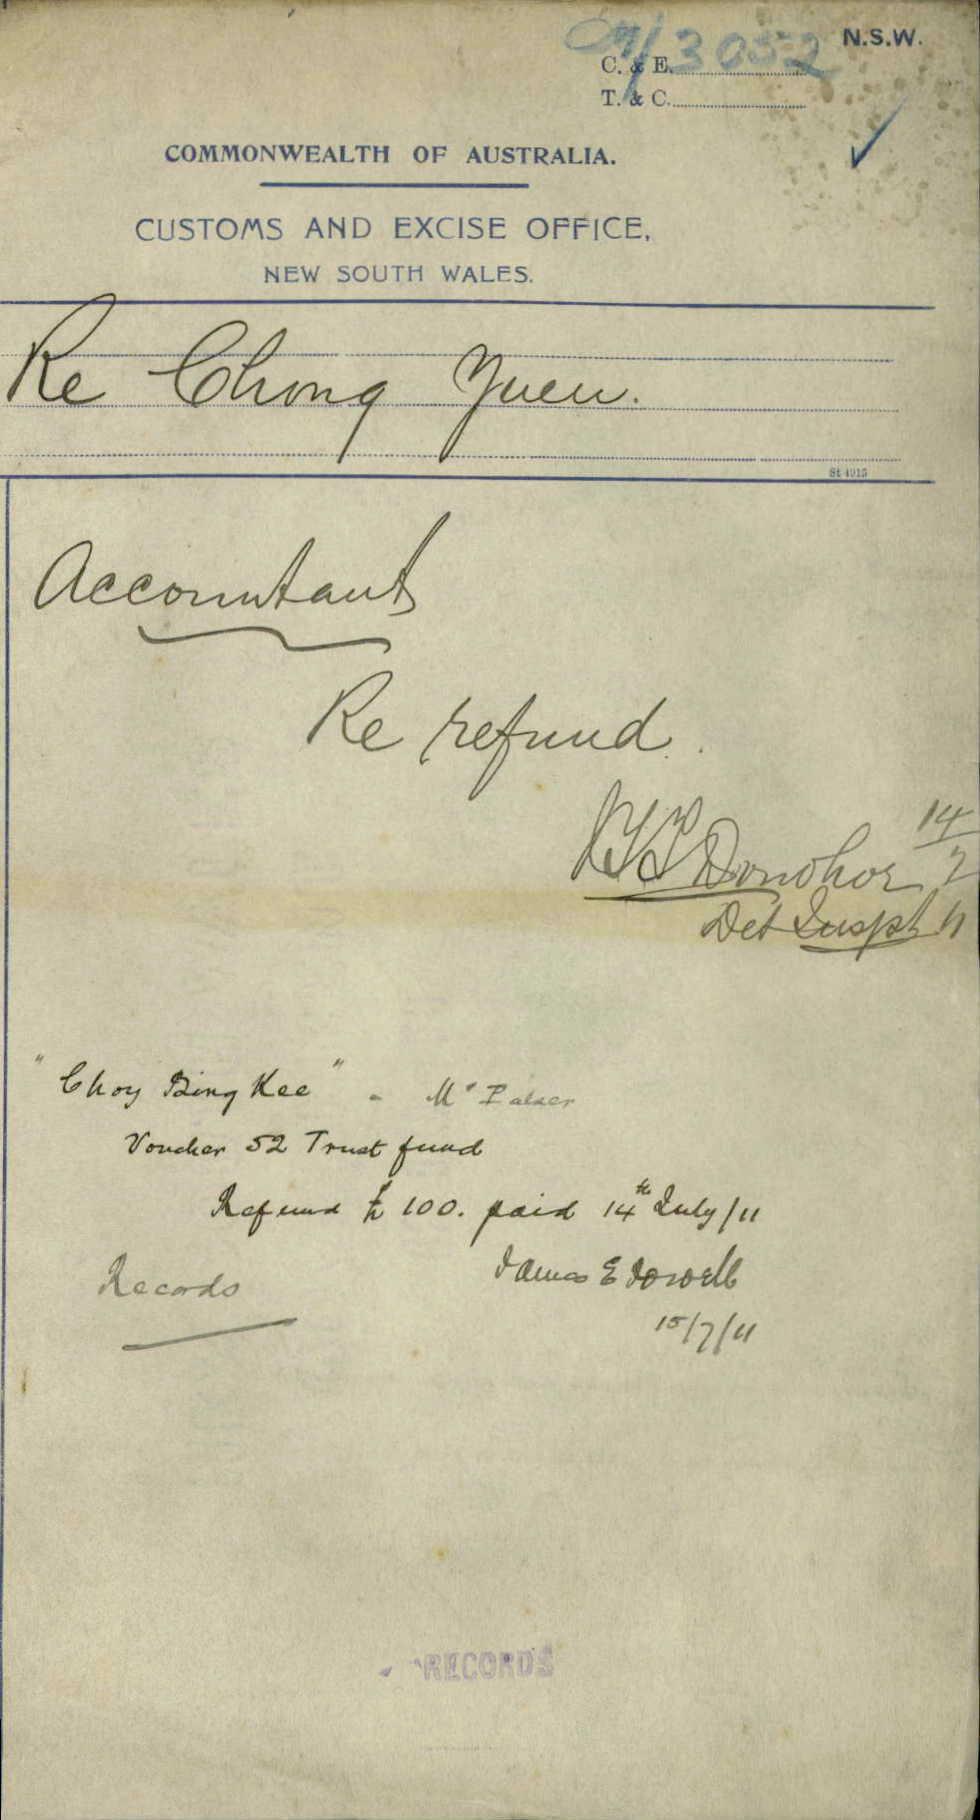 N.S.W.
C. & E. 3052
T. & C.
COMMONWEALTH OF AUSTRALIA.
CUSTOMS AND EXCISE OFFICE,
NEW SOUTH WALES.
Re Chong Yuen.
St 4915
Accountant
Re refund.
Donohoe 14/7/11
Det Inspt
"Choy Bing Kee" - Mr Palser
Voucher 52 Trust fund
Refund £100. paid 14th July/11
Records
James E Dowell
15/7/11
RECORDS